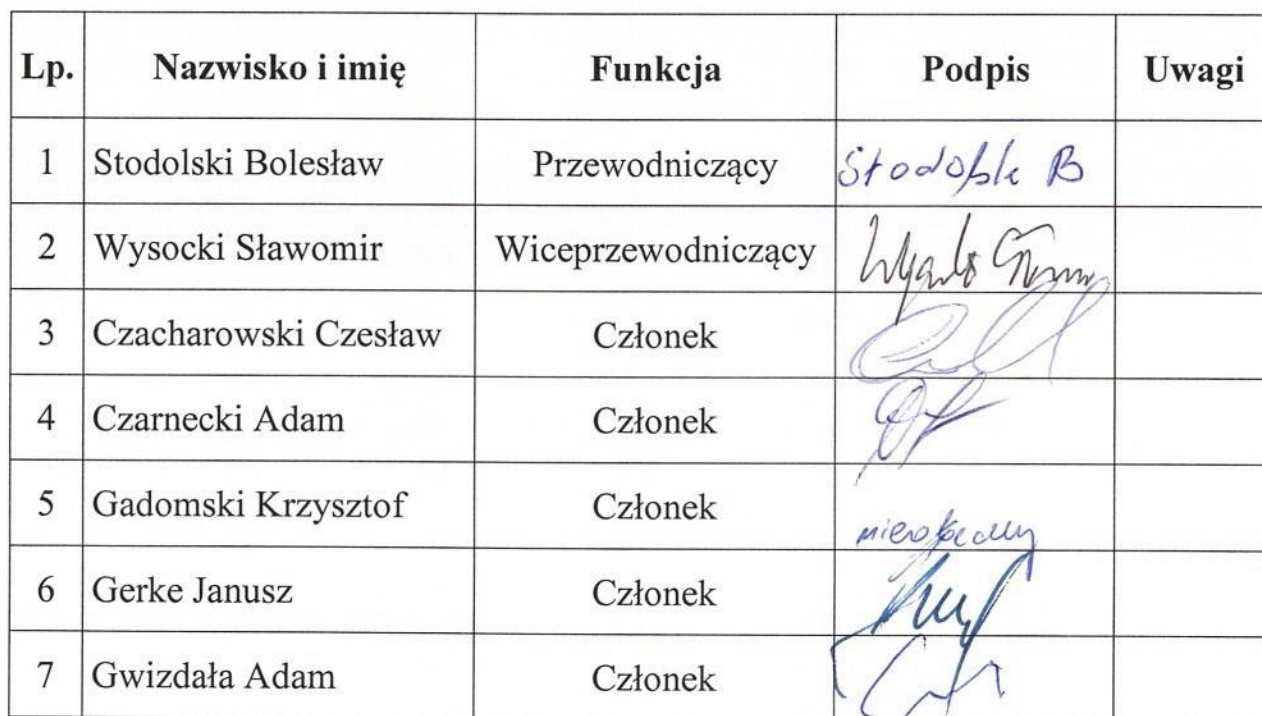 Lp. Nazwisko i imię Funkcja Podpis Uwagi
1 Stodolski Bolesław Przewodniczący
2 Wysocki Sławomir Wiceprzewodniczący
3 Czacharowski Czesław Członek
4 Czarnecki Adam Członek
5 Gadomski Krzysztof Członek nieobecny
6 Gerke Janusz Członek
7 Gwizdała Adam Członek